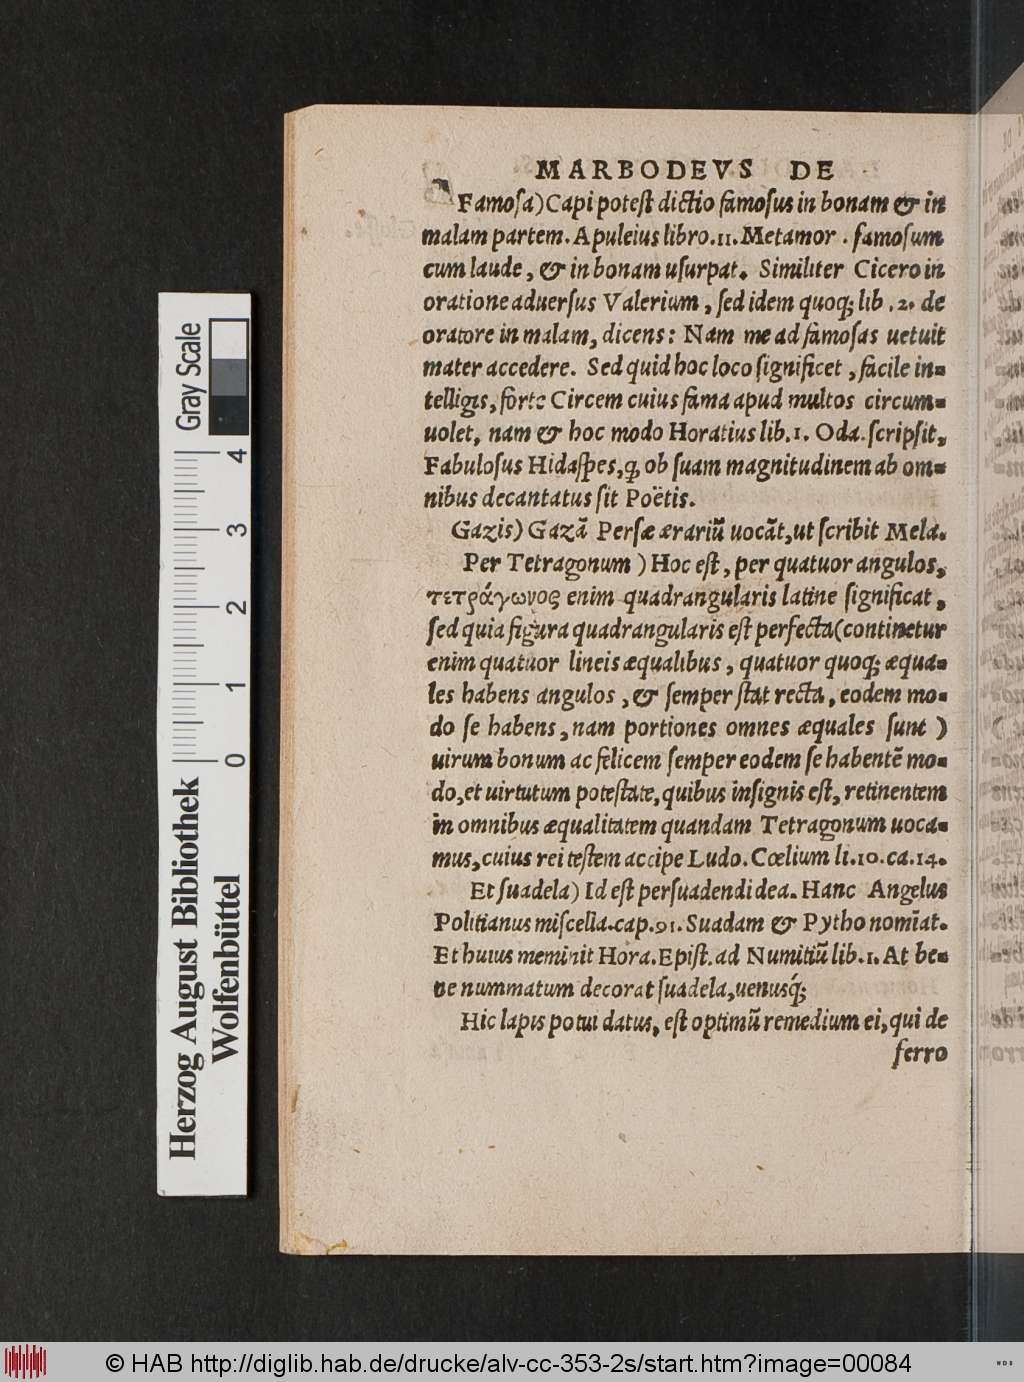 MARBODEVS DE
Famosa) Capi potest dictio famosus in bonam & in
malam partem. Apuleius libro.11. Metamor. famosum
cum laude, & in bonam usurpat. Similiter Cicero in
oratione aduersus Valerium, sed idem quoq; lib.2. de
oratore in malam, dicens: Nam me ad famosas uetuit
mater accedere. Sed quid hoc loco significet, facile in=
telligis, forte Circem cuius fama apud multos circum=
uolet, nam & hoc modo Horatius lib.1. Oda. scripsit,
Fabulosus Hidaspes, q, ob suam magnitudinem ab om=
nibus decantatus sit Poëtis.
Gazis) Gazā Persæ ærariū uocāt, ut scribit Mela.
Per Tetragonum) Hoc est, per quatuor angulos,
τετράγωνος enim quadrangularis latine significat,
sed quia figura quadrangularis est perfecta (continetur
enim quatuor lineis æqualibus, quatuor quoq; æqua=
les habens angulos, & semper stat recta, eodem mo=
do se habens, nam portiones omnes æquales sunt)
uirum bonum ac felicem semper eodem se habentē mo=
do, et uirtutum potestate, quibus insignis est, retinentem
in omnibus æqualitatem quandam Tetragonum uoca=
mus, cuius rei testem accipe Ludo. Cœlium li.10.ca.14.
Et suadela) Id est persuadendi dea. Hanc Angelus
Politianus miscella.cap.91. Suadam & Pytho nomīat.
Et huius meminit Hora. Epist. ad Numitiū lib.1. At be=
ne nummatum decorat suadela, uenusq́;
Hic lapis potui datus, est optimū remedium ei, qui de
ferro
Gray Scale
4
3
2
1
0
Herzog August Bibliothek
Wolfenbüttel
© HAB http://diglib.hab.de/drucke/alv-cc-353-2s/start.htm?image=00084